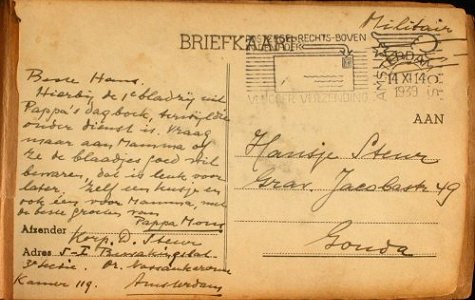 Militair
BRIEFKAART
POSTZEGEL RECHTS-BOVEN
AMSTERDAM
14 XI 14
1939
Beste Hans.
Hierbij de 1e bladzij uit
Pappa's dagboek, terwijl die
onder dienst is. Vraag
maar aan Mamma of
ze de blaadjes goed wil
bewaren, dat is leuk voor
later. Zelf een kusje en
ook een voor Mamma, met
de beste groeten van
Pappa
Afzender Korp. D. Steur
Adres 5-I
3e Sectie.
Kamer 119. Amsterdam
AAN
Hansje Steur
Grav. Jacobastr 49
Gouda